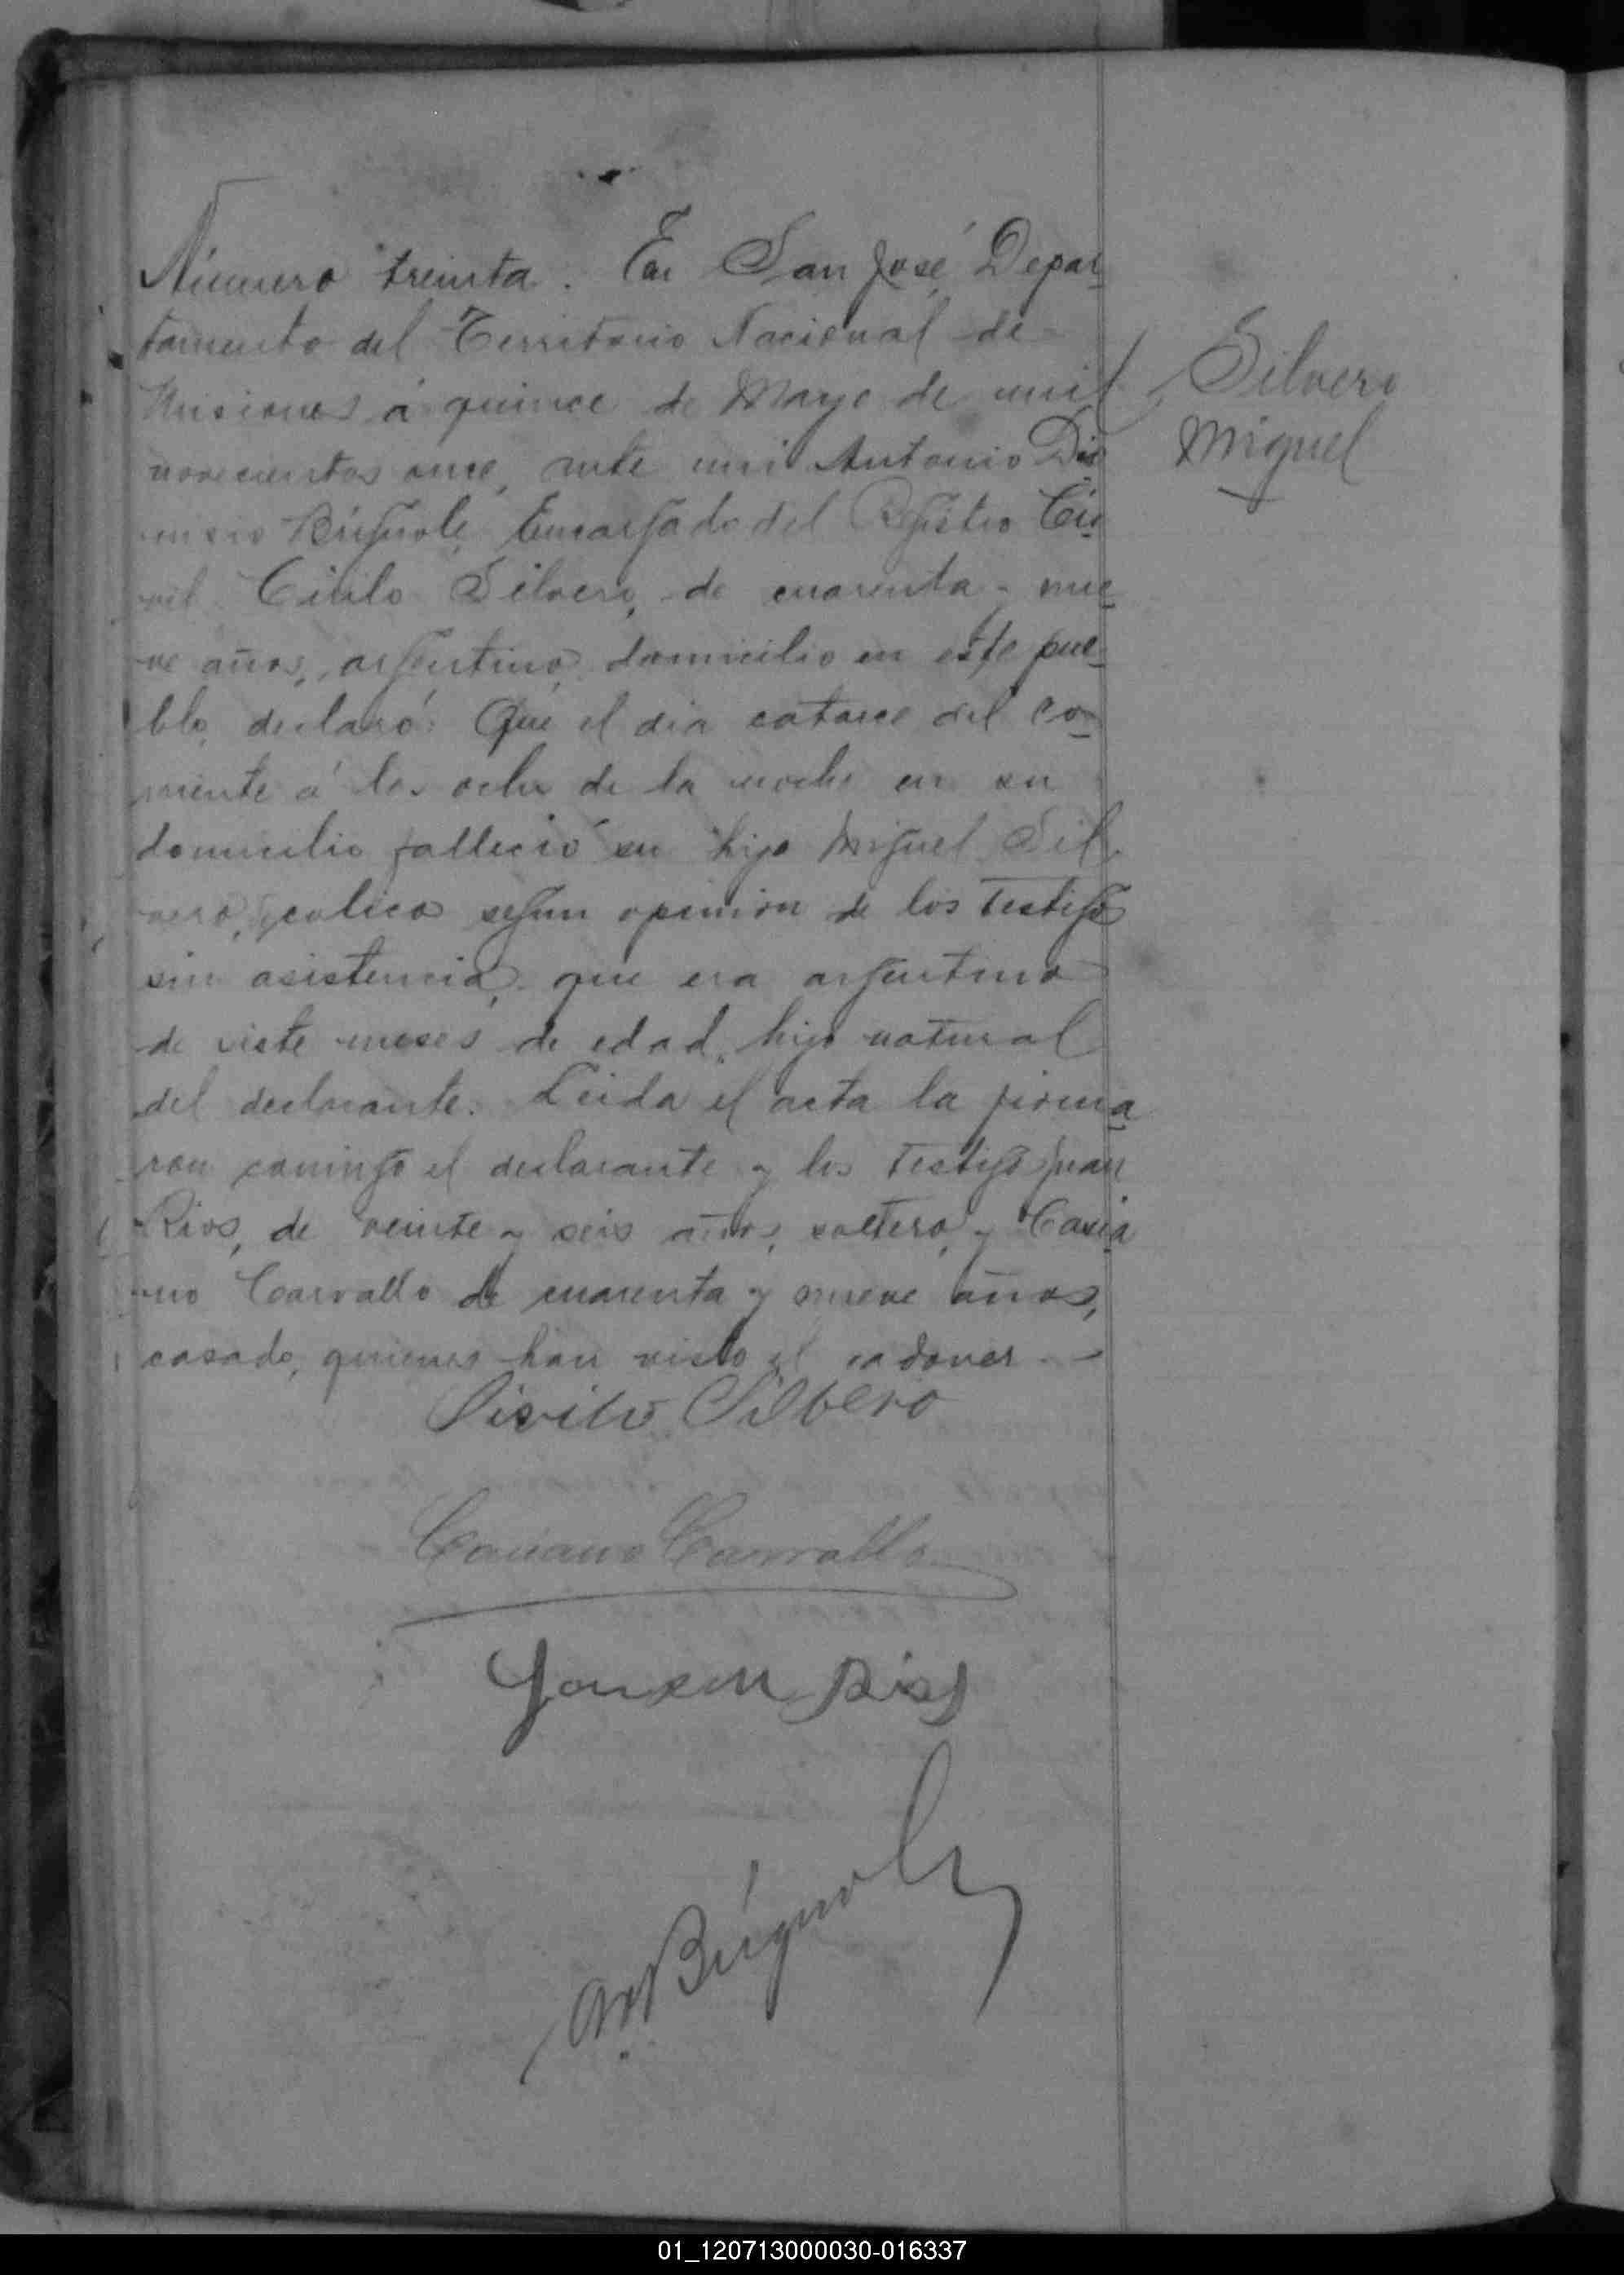 Número treinta. En San José, Depar-
tamento del Territorio Nacional de
Misiones á quince de Mayo de mil
novecientos once, ante mi Antonio
Bígnole, Encargado del Registro Ci-
vil Cirilo Silvero, de cuarenta y nue-
ve años, argentino, domicilio en este pue-
blo, declaró: Que el dia catorce del co-
rriente á las ocho de la noche en su
domicilio falleció su hijo Miguel Sil-
vero, colico segun opinion de los testigos
sin asistencia, que era argentino
de siete meses de edad, hijo natural
del declarante. Leida el acta la firma-
ron conmigo el declarante y los testigos Juan
Rios, de veinte y seis años, soltero, y Casia
no Carvallo de cuarenta y nueve años,
casado, quienes han visto el cadaver.-
Silvero
Miguel
Sirilo Silbero
Casiano Carvallo
Rios
Bígnole
01_120713000030-016337